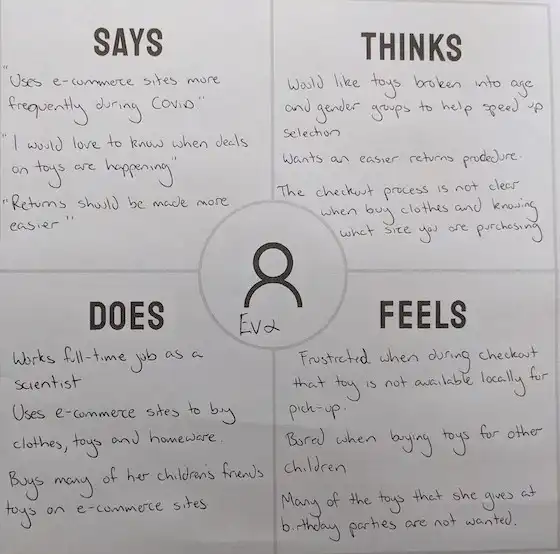 SAYS
"Uses e-commerce sites more
frequently during COVID"
"I would love to know when deals
on toys are happening"
"Returns should be made more
easier"
THINKS
Would like toys broken into age
and gender groups to help speed up
selection
Wants an easier returns prodecure.
The checkout process is not clear
when buy clothes and knowing
what size you are purchasing
Eva
DOES
Works full-time job as a
scientist
Uses e-commerce sites to buy
clothes, toys and homeware.
Buys many of her children's friends
toys on e-commerce sites
FEELS
Frustrated when during checkout
that toy is not available locally for
pick-up.
Bored when buying toys for other
children
Many of the toys that she gives at
birthday parties are not wanted.